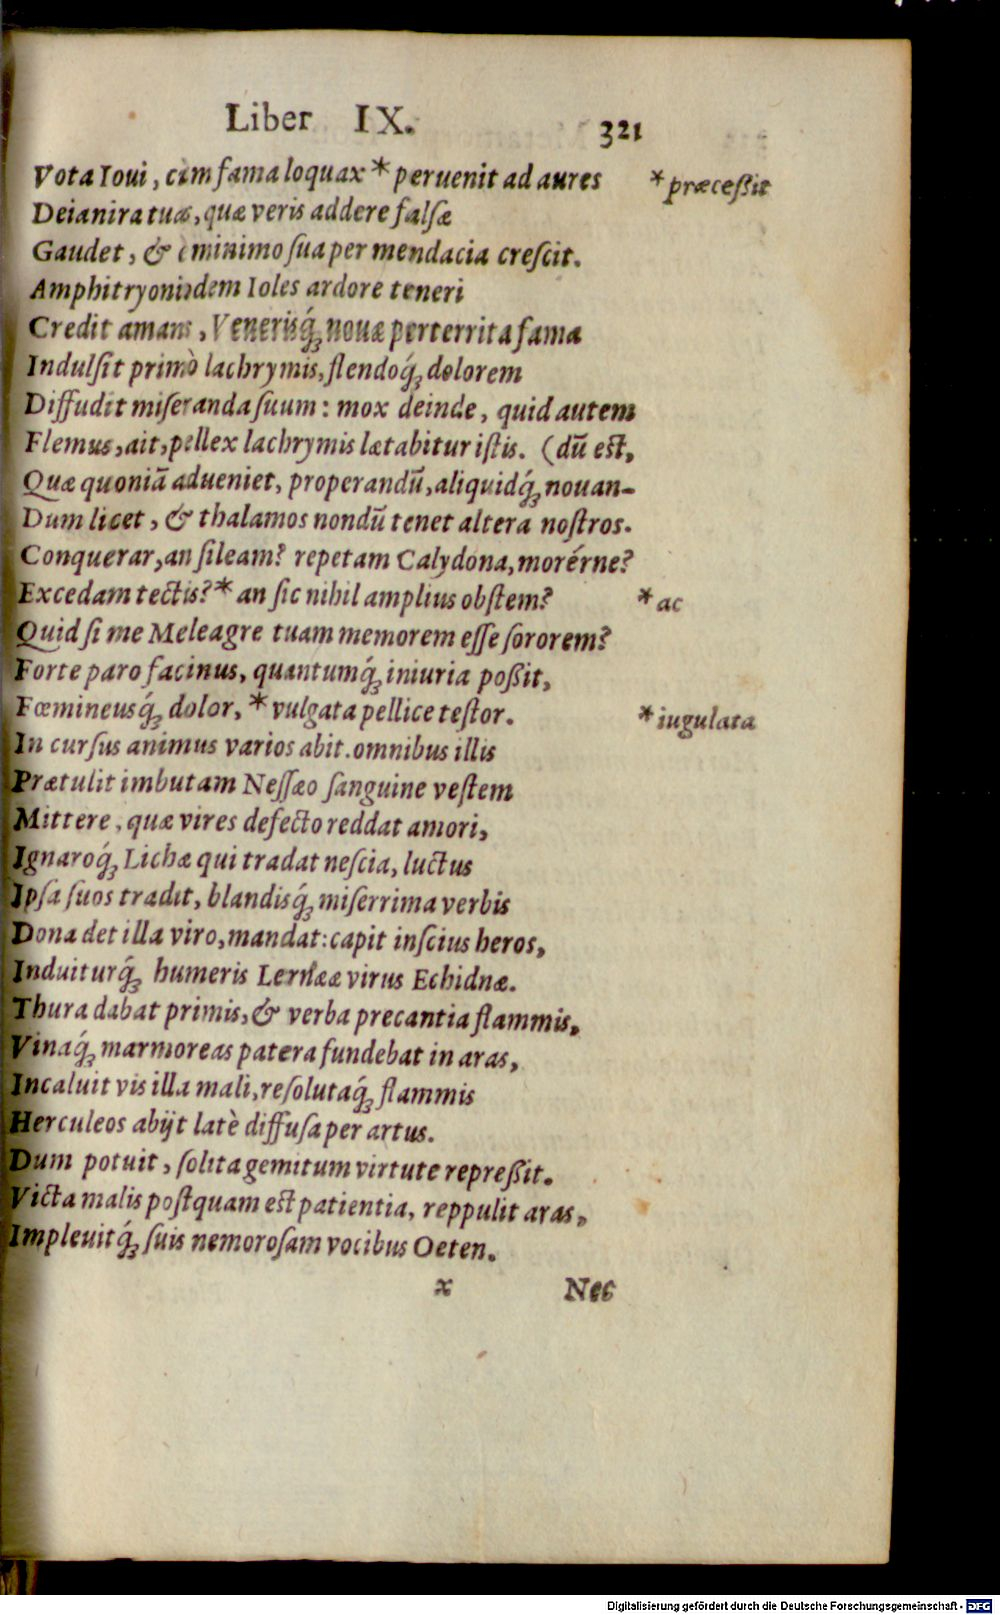 Liber IX. 321
Vota Ioui, cùm fama loquax * peruenit ad aures *præceßit
Deianira tuas, quæ veris addere falsæ
Gaudet, & è minimo sua per mendacia crescit.
Amphitryoniadem Ioles ardore teneri
Credit amans, Venerisq́ꝫ nouæ perterrita fama
Indulsit primò lachrymis, flendoq́ꝫ dolorem
Diffudit miseranda suum: mox deinde, quid autem
Flemus, ait, pellex lachrymis lætabitur istis. (dū est,
Quæ quoniā adueniet, properandū, aliquidq́ꝫ nouan-
Dum licet, & thalamos nondū tenet altera nostros.
Conquerar, an sileam? repetam Calydona, morérne?
Excedam tectis? * an sic nihil amplius obstem? *ac
Quid si me Meleagre tuam memorem esse sororem?
Forte paro facinus, quantumq́ꝫ iniuria poßit,
Fœmineusq́ꝫ dolor, * vulgata pellice testor. *iugulata
In cursus animus varios abit. omnibus illis
Prætulit imbutam Nessæo sanguine vestem
Mittere, quæ vires defecto reddat amori,
Ignaroq́ꝫ Lichæ qui tradat nescia, luctus
Ipsa suos tradit, blandisq́ꝫ miserrima verbis
Dona det illa viro, mandat: capit inscius heros,
Induiturq́ꝫ humeris Lernææ virus Echidnæ.
Thura dabat primis, & verba precantia flammis,
Vinaq́ꝫ marmoreas patera fundebat in aras,
Incaluit vis illa mali, resolutaq́ꝫ flammis
Herculeos abijt latè diffusa per artus.
Dum potuit, solita gemitum virtute repreßit.
Victa malis postquam est patientia, reppulit aras,
Impleuitq́ꝫ suis nemorosam vocibus Oeten.
x Nec
Digitalisierung gefördert durch die Deutsche Forschungsgemeinschaft - DFG